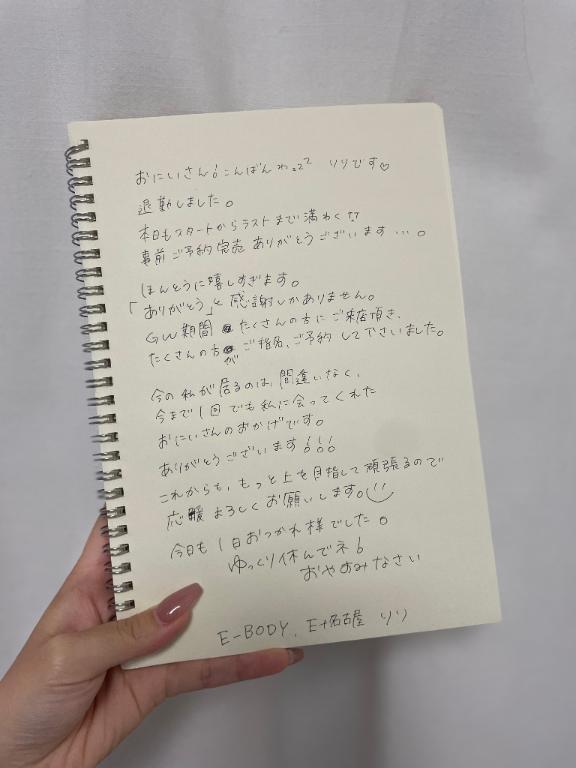 おにいさん!こんばんわ??? りりです♡
退勤しました。
本日もスタートからラストまで満わく!?
事前ご予約完売ありがとうございます…。
ほんとうに嬉しすぎます。
「ありがとう」と感謝しかありません。
GW期間 たくさんの方にご来店頂き、
たくさんの方がご指名、ご予約して下さいました。
今の私が居るのは、間違いなく、
今まで1回でも私に会ってくれた
おにいさんのおかげです。
ありがとうございます!!!
これからも、もっと上を目指して頑張るので
応援よろしくお願いします。!!
今日も1日おつかれ様でした。
ゆっくり休んでネ!
おやすみなさい
E-BODY、E+名古屋 りり